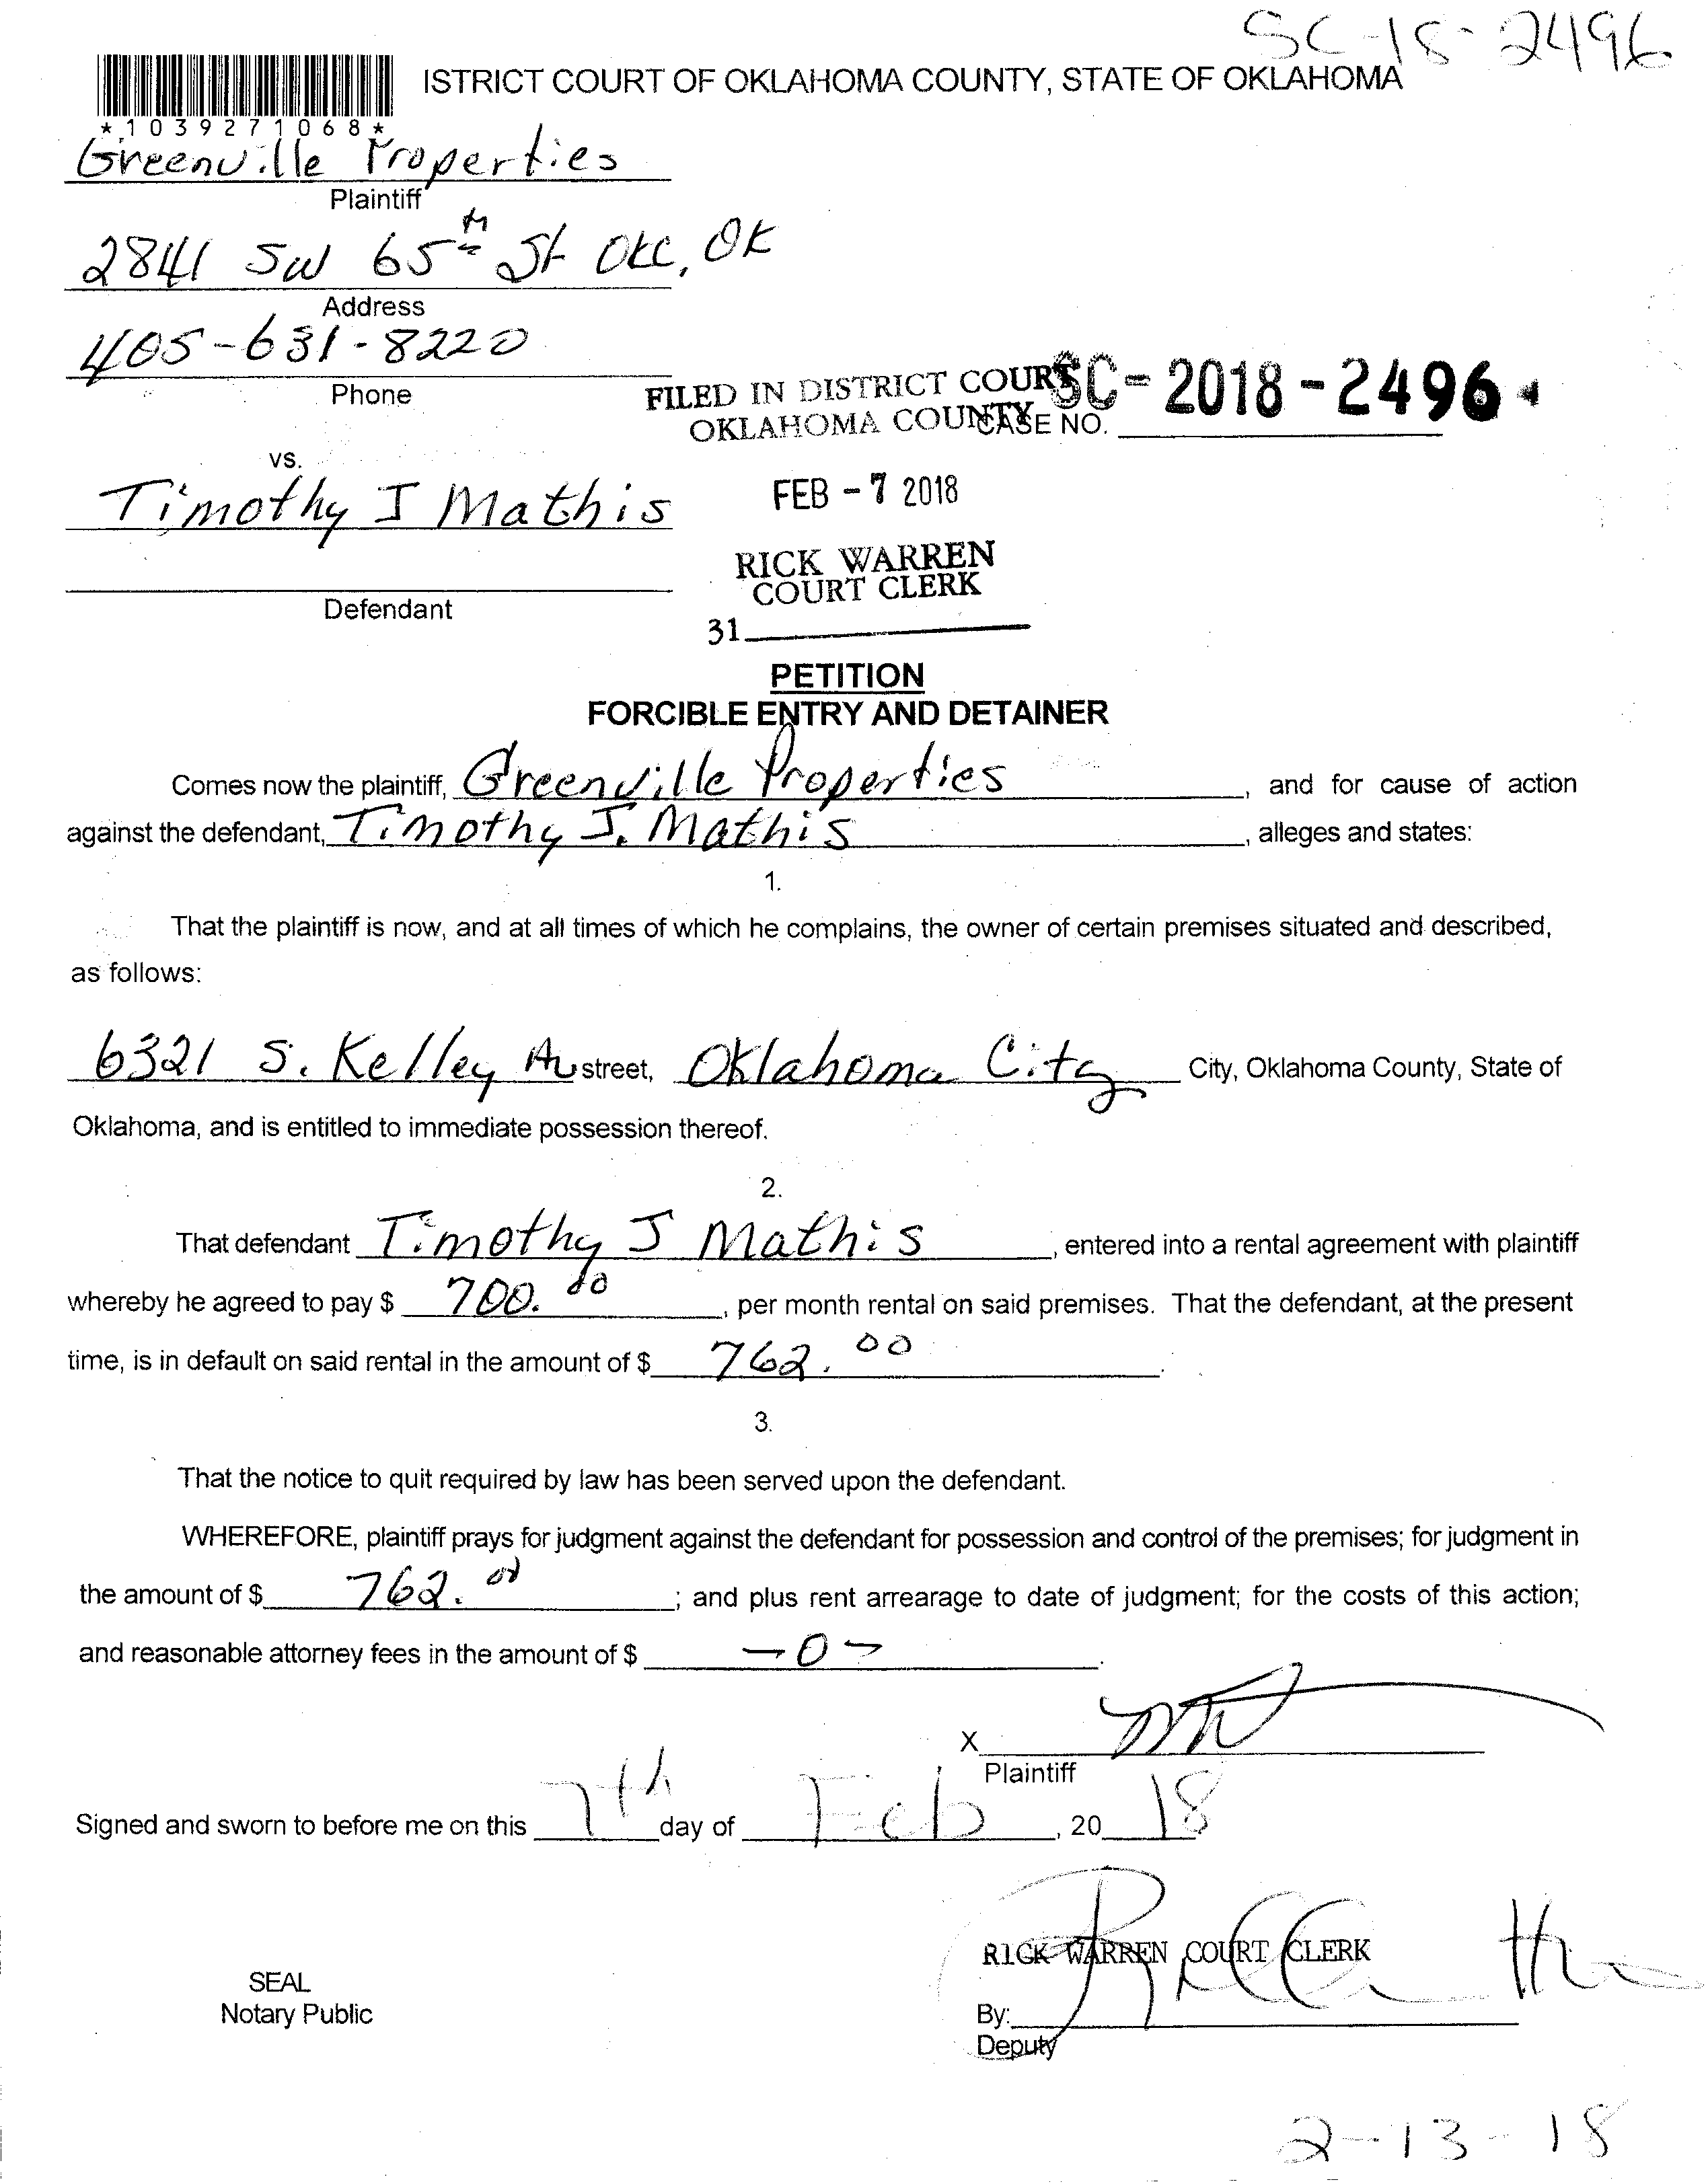 SC-18-2496
ISTRICT COURT OF OKLAHOMA COUNTY, STATE OF OKLAHOMA
*1039271068*
Greenville Properties
Plaintiff
2841 SW 65th St OKC, OK
Address
405-631-8220
Phone
FILED IN DISTRICT COURT
OKLAHOMA COUNTY
CASE NO. SC-2018-2496
vs.
Timothy J Mathis
Defendant
FEB -7 2018
RICK WARREN
COURT CLERK
31
PETITION
FORCIBLE ENTRY AND DETAINER
Comes now the plaintiff, Greenville Properties, and for cause of action
against the defendant, Timothy J. Mathis, alleges and states:
1.
That the plaintiff is now, and at all times of which he complains, the owner of certain premises situated and described,
as follows:
6321 S. Kelley Av street, Oklahoma City City, Oklahoma County, State of
Oklahoma, and is entitled to immediate possession thereof.
2.
That defendant Timothy J Mathis, entered into a rental agreement with plaintiff
whereby he agreed to pay $ 700.00, per month rental on said premises. That the defendant, at the present
time, is in default on said rental in the amount of $ 762.00.
3.
That the notice to quit required by law has been served upon the defendant.
WHEREFORE, plaintiff prays for judgment against the defendant for possession and control of the premises; for judgment in
the amount of $ 762.00; and plus rent arrearage to date of judgment; for the costs of this action;
and reasonable attorney fees in the amount of $ -0-.
X
Plaintiff
Signed and sworn to before me on this 7th day of Feb, 20 18
RICK WARREN COURT CLERK
SEAL
Notary Public
By:
Deputy
2-13-18